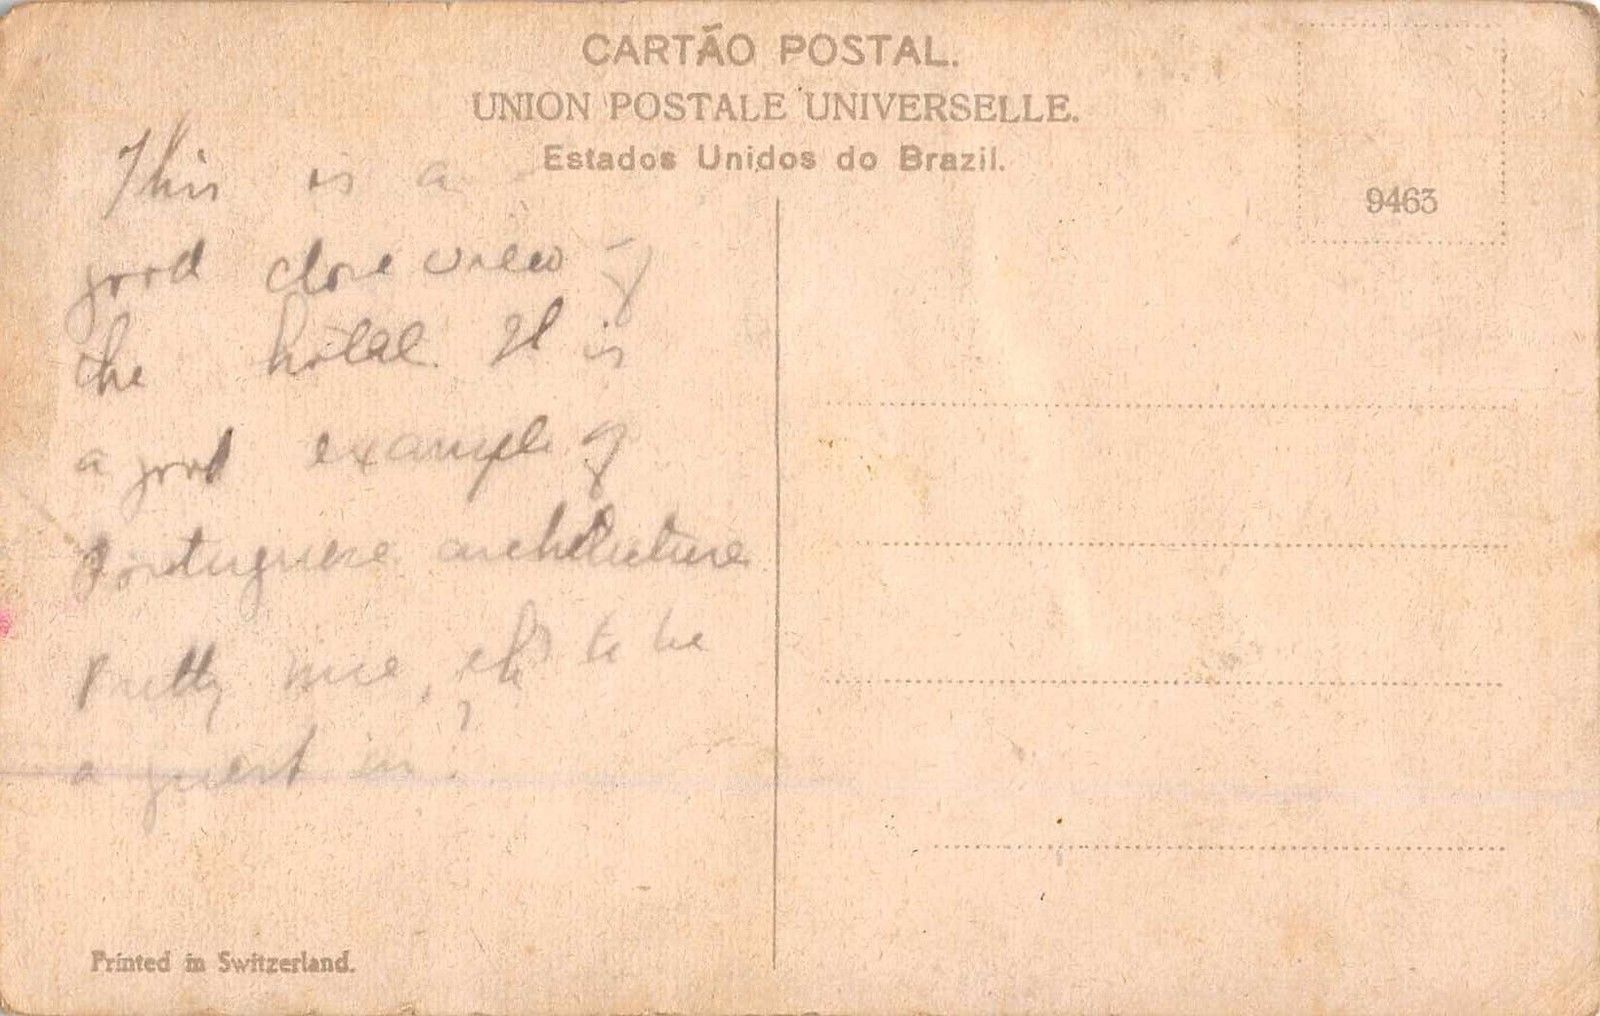 CARTÃO POSTAL.
UNION POSTALE UNIVERSELLE.
Estados Unidos do Brazil.
9463
This is a
good close view of
the hotel. It is
a good example of
Portuguese architecture
Pretty nice, eh? to be
a guest in.
Printed in Switzerland.